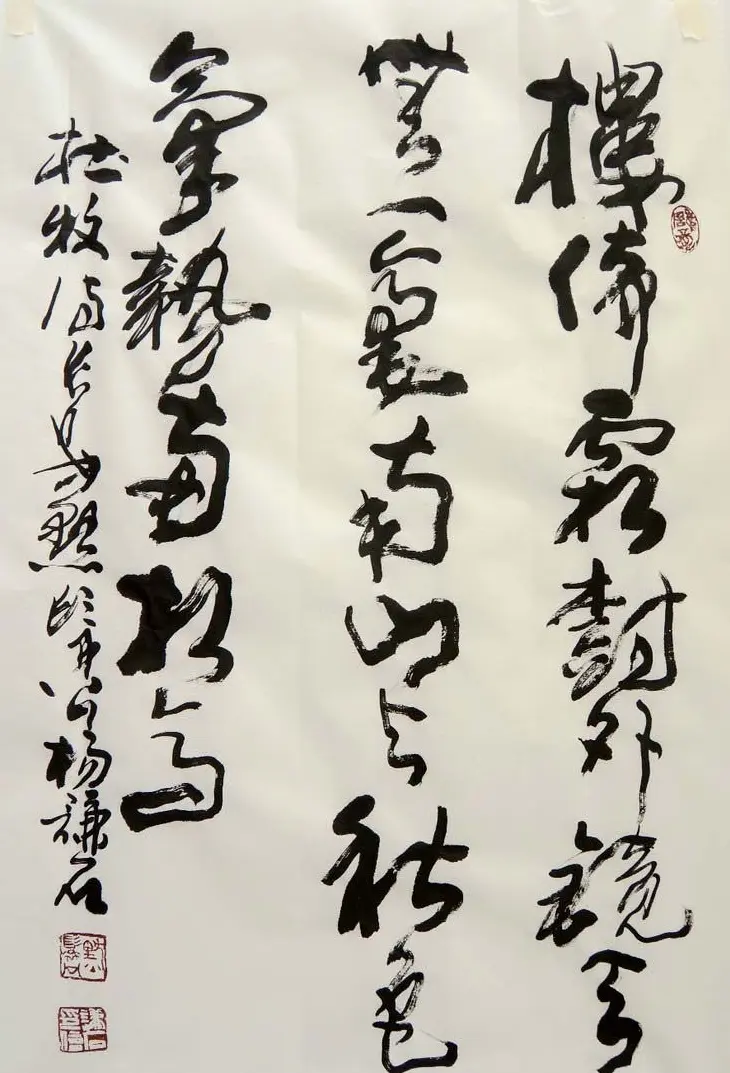 樓倚霜樹外鏡天
無一毫南山與秋色
氣勢兩相高
杜牧詩長安 楊謙石